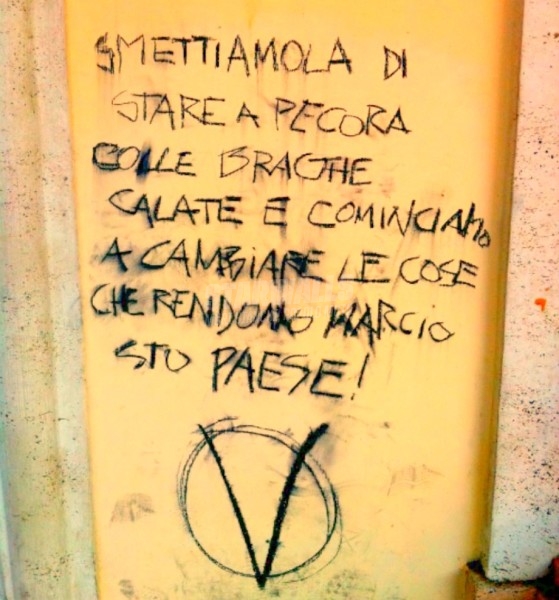 SMETTIAMOLA DI
STARE A PECORA
COLLE BRAGHE
CALATE E COMINCIAMO
A CAMBIARE LE COSE
CHE RENDONO MARCIO
STO PAESE!
V